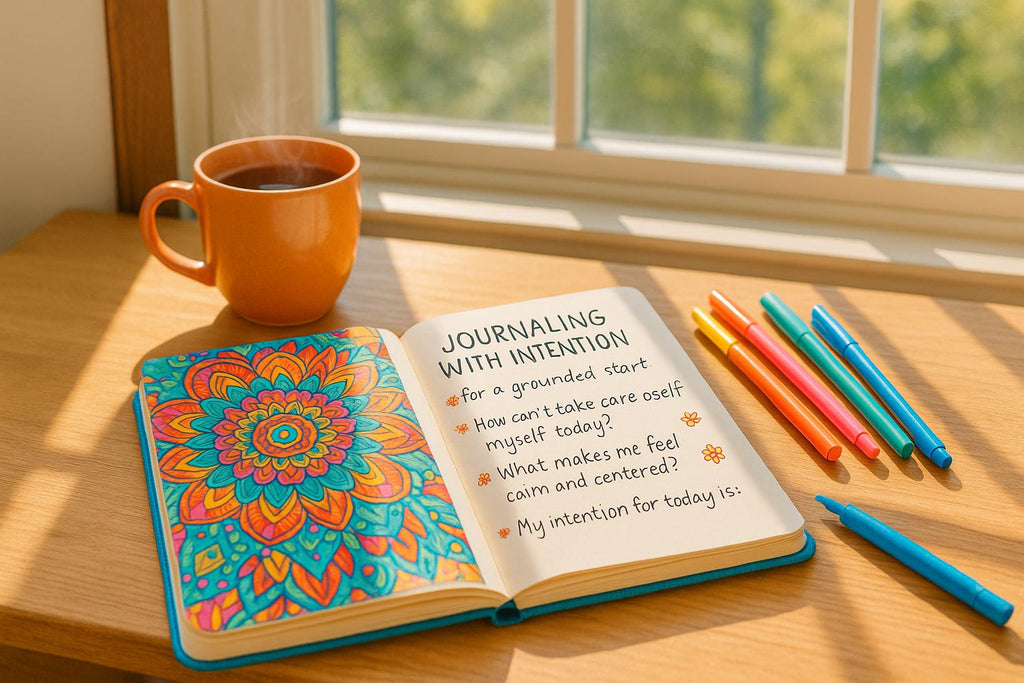 JOURNALING
WITH INTENTION
for a grounded start.
How can't take care oself
myself today?
What makes me feel
caim and centered?
My intention for today is: